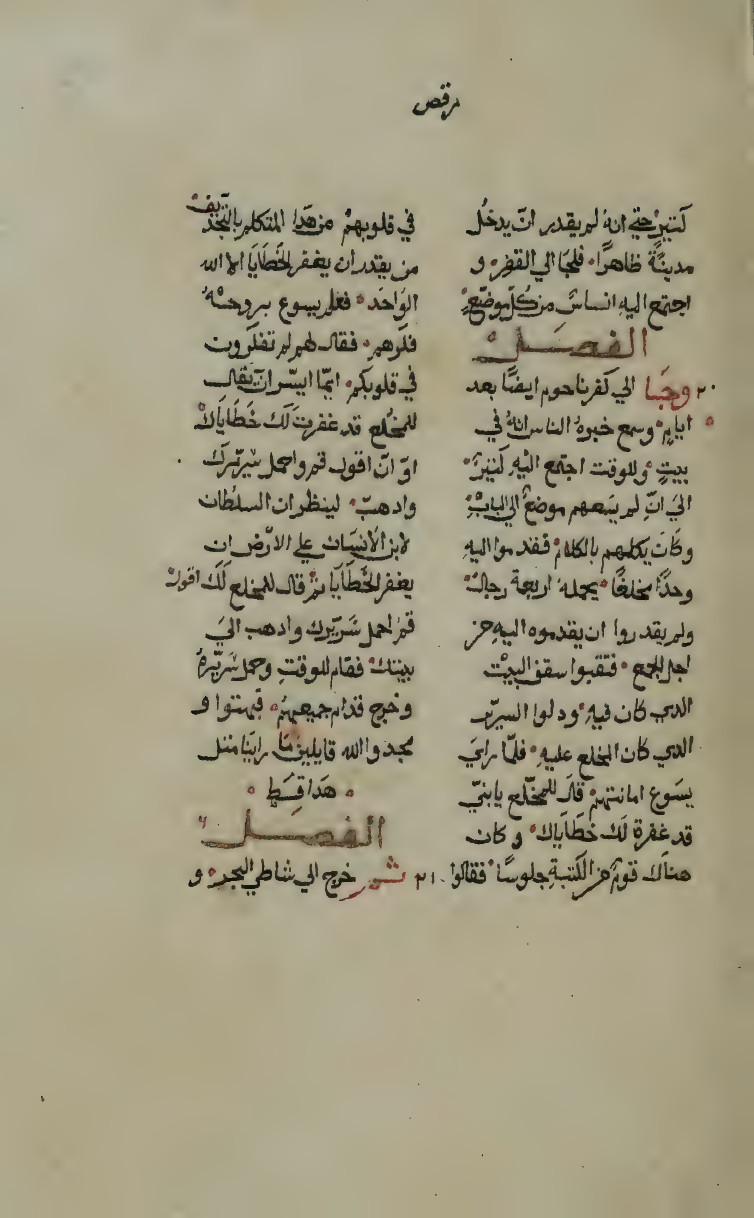 مرقص
كتير حتي انه لم يقدر ان يدخل
مدينة ظاهرا فلجا الي القفر و
اجتمع اليه اناس من كل موضع
الفصل
٢٠ وجا الي كفرناحوم ايضا بعد
ايام وسمع خبره الناس انه في
بيت وللوقت اجتمع اليه كتير
الي ان لم يسعهم موضع الي الباب
وكان يكلمهم بالكلام فقدموا اليه
وحدا مخلعا يحمله اربعة رجال
ولم يقدروا ان يقدموه اليه من
اجل الجمع فتقبوا سقف البيت
الدي كان فيه ودلوا السرير
الدي كان المخلع عليه فلما راي
يسوع امانتهم قال للمخلع يابني
قد غفرة لك خطاياك وكان
هناك قوم من الكتبة جلوسا فقالوا
في قلوبهم من هدا المتكلم بالتجديف
من يقدر ان يغفر الخطايا الا الله
الواحد فعلم يسوع بروحه
فكرهم فقال لهم لم تفكرون
في قلوبكم ايما ايسر ان يقال
للمخلع قد غفرت لك خطاياك
او ان اقول قم واحمل سريرك
وادهب لينظر ان السلطان
لابن الانسان علي الارض ان
يغفر الخطايا ثم قال للمخلع لك اقول
قم احمل سريرك وادهب الي
بيتك فقام للوقت وحمل سريره
وخرج قدام جميعهم فبهتوا و
مجدوا الله قايلين ما راينا متل
هدا قط
الفصل
٢١ ثم خرج الي شاطي البحر و